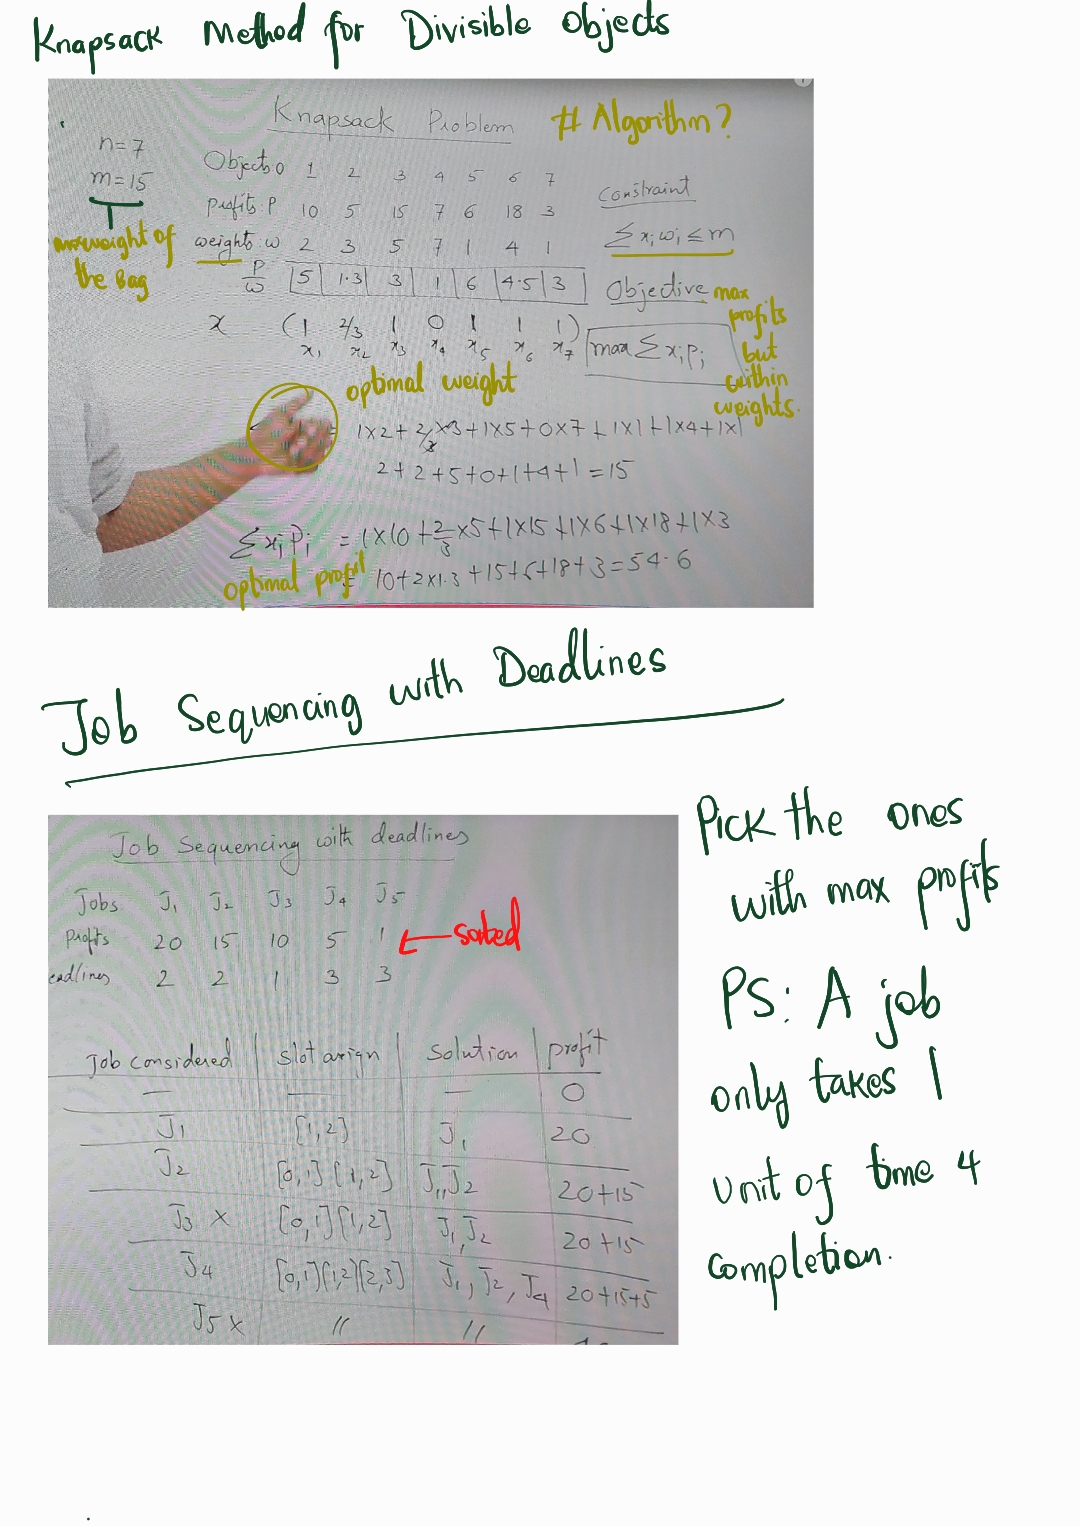 Knapsack Method for Divisible Objects
Knapsack Problem # Algorithm?
n=7
m=15
weight of
the Bag
Objects:O 1 2 3 4 5 6 7
Profits:P 10 5 15 7 6 18 3
weights:w 2 3 5 7 1 4 1
P/w 5 1.3 3 1 6 4.5 3
x (1 2/3 1 0 1 1 1)
x₁ x₂ x₃ x₄ x₅ x₆ x₇
Constraint
∑xᵢwᵢ ≤ m
Objective max
profits
but
within
weights.
max ∑xᵢpᵢ
optimal weight
1×2+2/3×3+1×5+0×7+1×1+1×4+1×1
2+2+5+0+1+4+1=15
∑xᵢPᵢ = 1×10+2/3×5+1×15+1×6+1×18+1×3
optimal profit = 10+2×1.3+15+6+18+3=54.6
Job Sequencing with Deadlines
Job Sequencing with deadlines
Jobs J₁ J₂ J₃ J₄ J₅
Profits 20 15 10 5 1 ← sorted
eadlines 2 2 1 3 3
Job considered slot assign solution profit
— — — 0
J₁ [1,2] J₁ 20
J₂ [0,1][1,2] J₁,J₂ 20+15
J₃ × [0,1][1,2] J₁,J₂ 20+15
J₄ [0,1][1,2][2,3] J₁,J₂,J₄ 20+15+5
J₅ × // //
Pick the ones
with max profits
PS: A job
only takes 1
unit of time 4
completion.